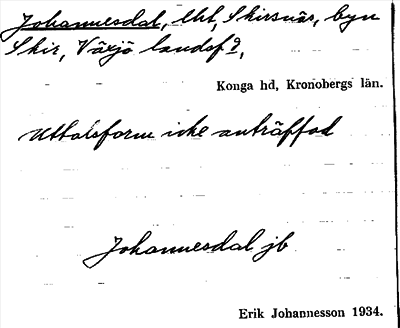 Johannesdal, lht, Skirsnäs, byn
Skir, Växjö landsf
Konga hd, Kronobergs län.
Uttalsform icke anträffad
Johannesdal jb
Erik Johannesson 1934.